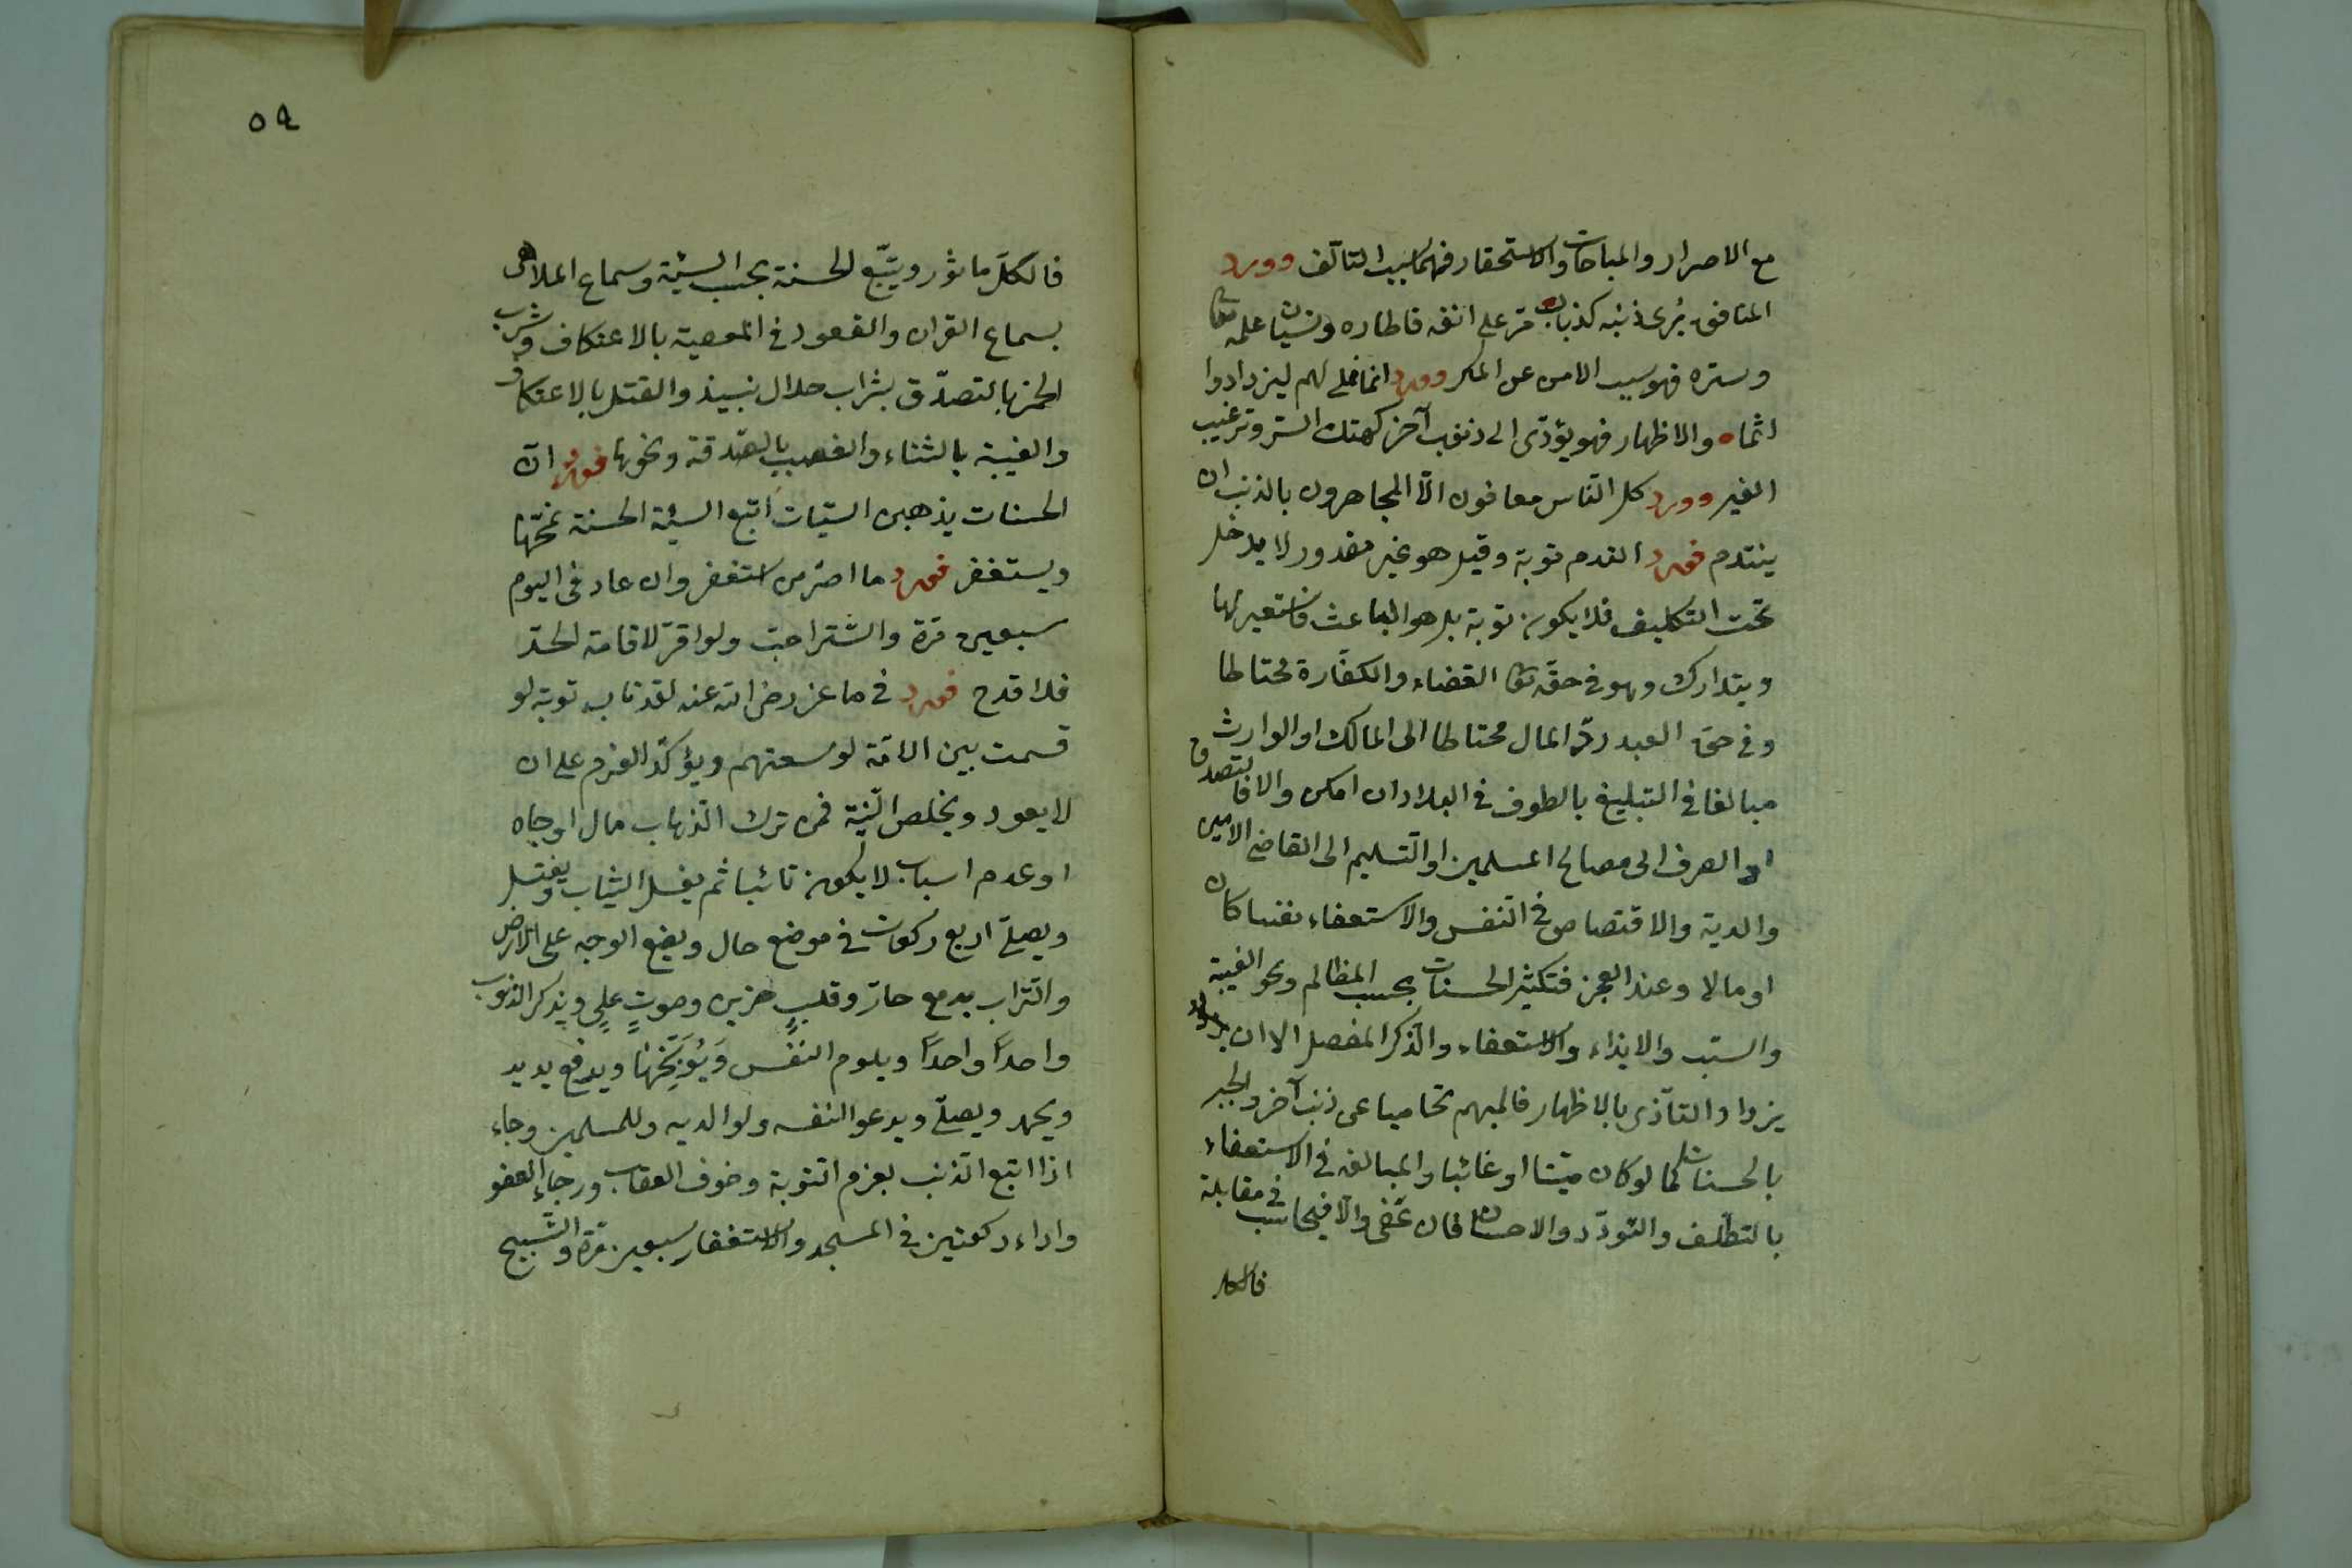 مع الاصرار والمباحات والاستحقار فهما سبب التألف وورد
المنافق يرى ذنبه كذباب مر على انفه فاطاره ونسيان علمه تعا
وستره فهو سبب الامن عن المكر وورد انما نملى لهم ليزدادوا
اثما ه والاظهار فهو يؤدّى الى ذنب آخر كهتك الستر وترغيب
الغير وورد كل النّاس معافون الّا المجاهرون بالذنب ان
يتندم فورد الندم توبة وقيل هو غير مقدور لا يدخل
تحت التكليف فلا يكون توبة بل هو الباعث فاستعير لها
ويتدارك وهو في حقّه تعا القضاء والكفّارة محتاطا
وفى حق العبد ردّ المال محتاطا الى المالك او الوارث
مبالغا في التبليغ بالطوف في البلاد ان امكن والا فايتصدق
او الصرف الى مصالح المسلمين او التسليم الى القاضى الامين
والدية والاقتصاص في النفس والاستعفاء نفسا كان
او مالا وعند العجز فتكثير الحسنات بحسب المظالم ونحو الغيبة
والسبّ والايذاء والاستعفاء والذّكر المفصل الا ان
يزداد التأذّى بالاظهار فالمبهم تحاميا عن ذنب آخر والجبر
بالحسنات كما لو كان ميّتا او غائبا والمبالغه في الاستعفاء
بالتطلّف والتودّد والاحسان فان عفى والّا فيحاسب في مقابلة
فالكل
٥٩
فالكلّ مأثور ويتّبع الحسنة بحسب السيّئة وسماع الملاهى
بسماع القران والقعود في المعصية بالاعتكاف وشرب
الخمر بالتصدّق بشراب حلال نبيذ والقتل بالاعتكاف
والغيبة بالثناء والغصب بالصّدقة ونحوها فورد انّ
الحسنات يذهبن السّيات اتبع السيئة الحسنة تمحّها
ويستغفر فورد ما اصرّ من استغفر وان عاد في اليوم
سبعين مرّة والسّتر احبّ ولو اقرّ لاقامة الحدّ
فلا قدح فورد في ماعز رضى الله عنه لقد تاب توبة لو
قسمت بين الامّة لوسعتهم ويؤكّد العزم على ان
لا يعود ويخلص النّيّة فمن ترك لذهاب مال او جاه
او عدم اسباب لا يكون تائبا ثم يغسل الثياب ويغتسل
ويصلّى اربع ركعات في موضع خال ويضع الوجه على الارض
والتراب بدمع حارّ وقلبٍ حزين وصوتٍ علىٍ ويذكر الذنوب
واحدًا واحدًا ويلوم النفس وَيُوَبِّخُها ويرفع يديه
ويحمد ويصلّى ويدعو لنفسه ولوالديه وللمسلمين وجاء
اذا اتبع الذنب بعزم التوبة وخوف العقاب ورجاء العفو
واداء ركعتين في المسجد والاستغفار سبعين مرّة والتّسبيح